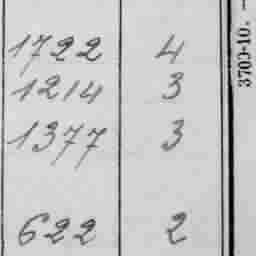 1722 4
1214 3
1377 3
622 2
3700-10.